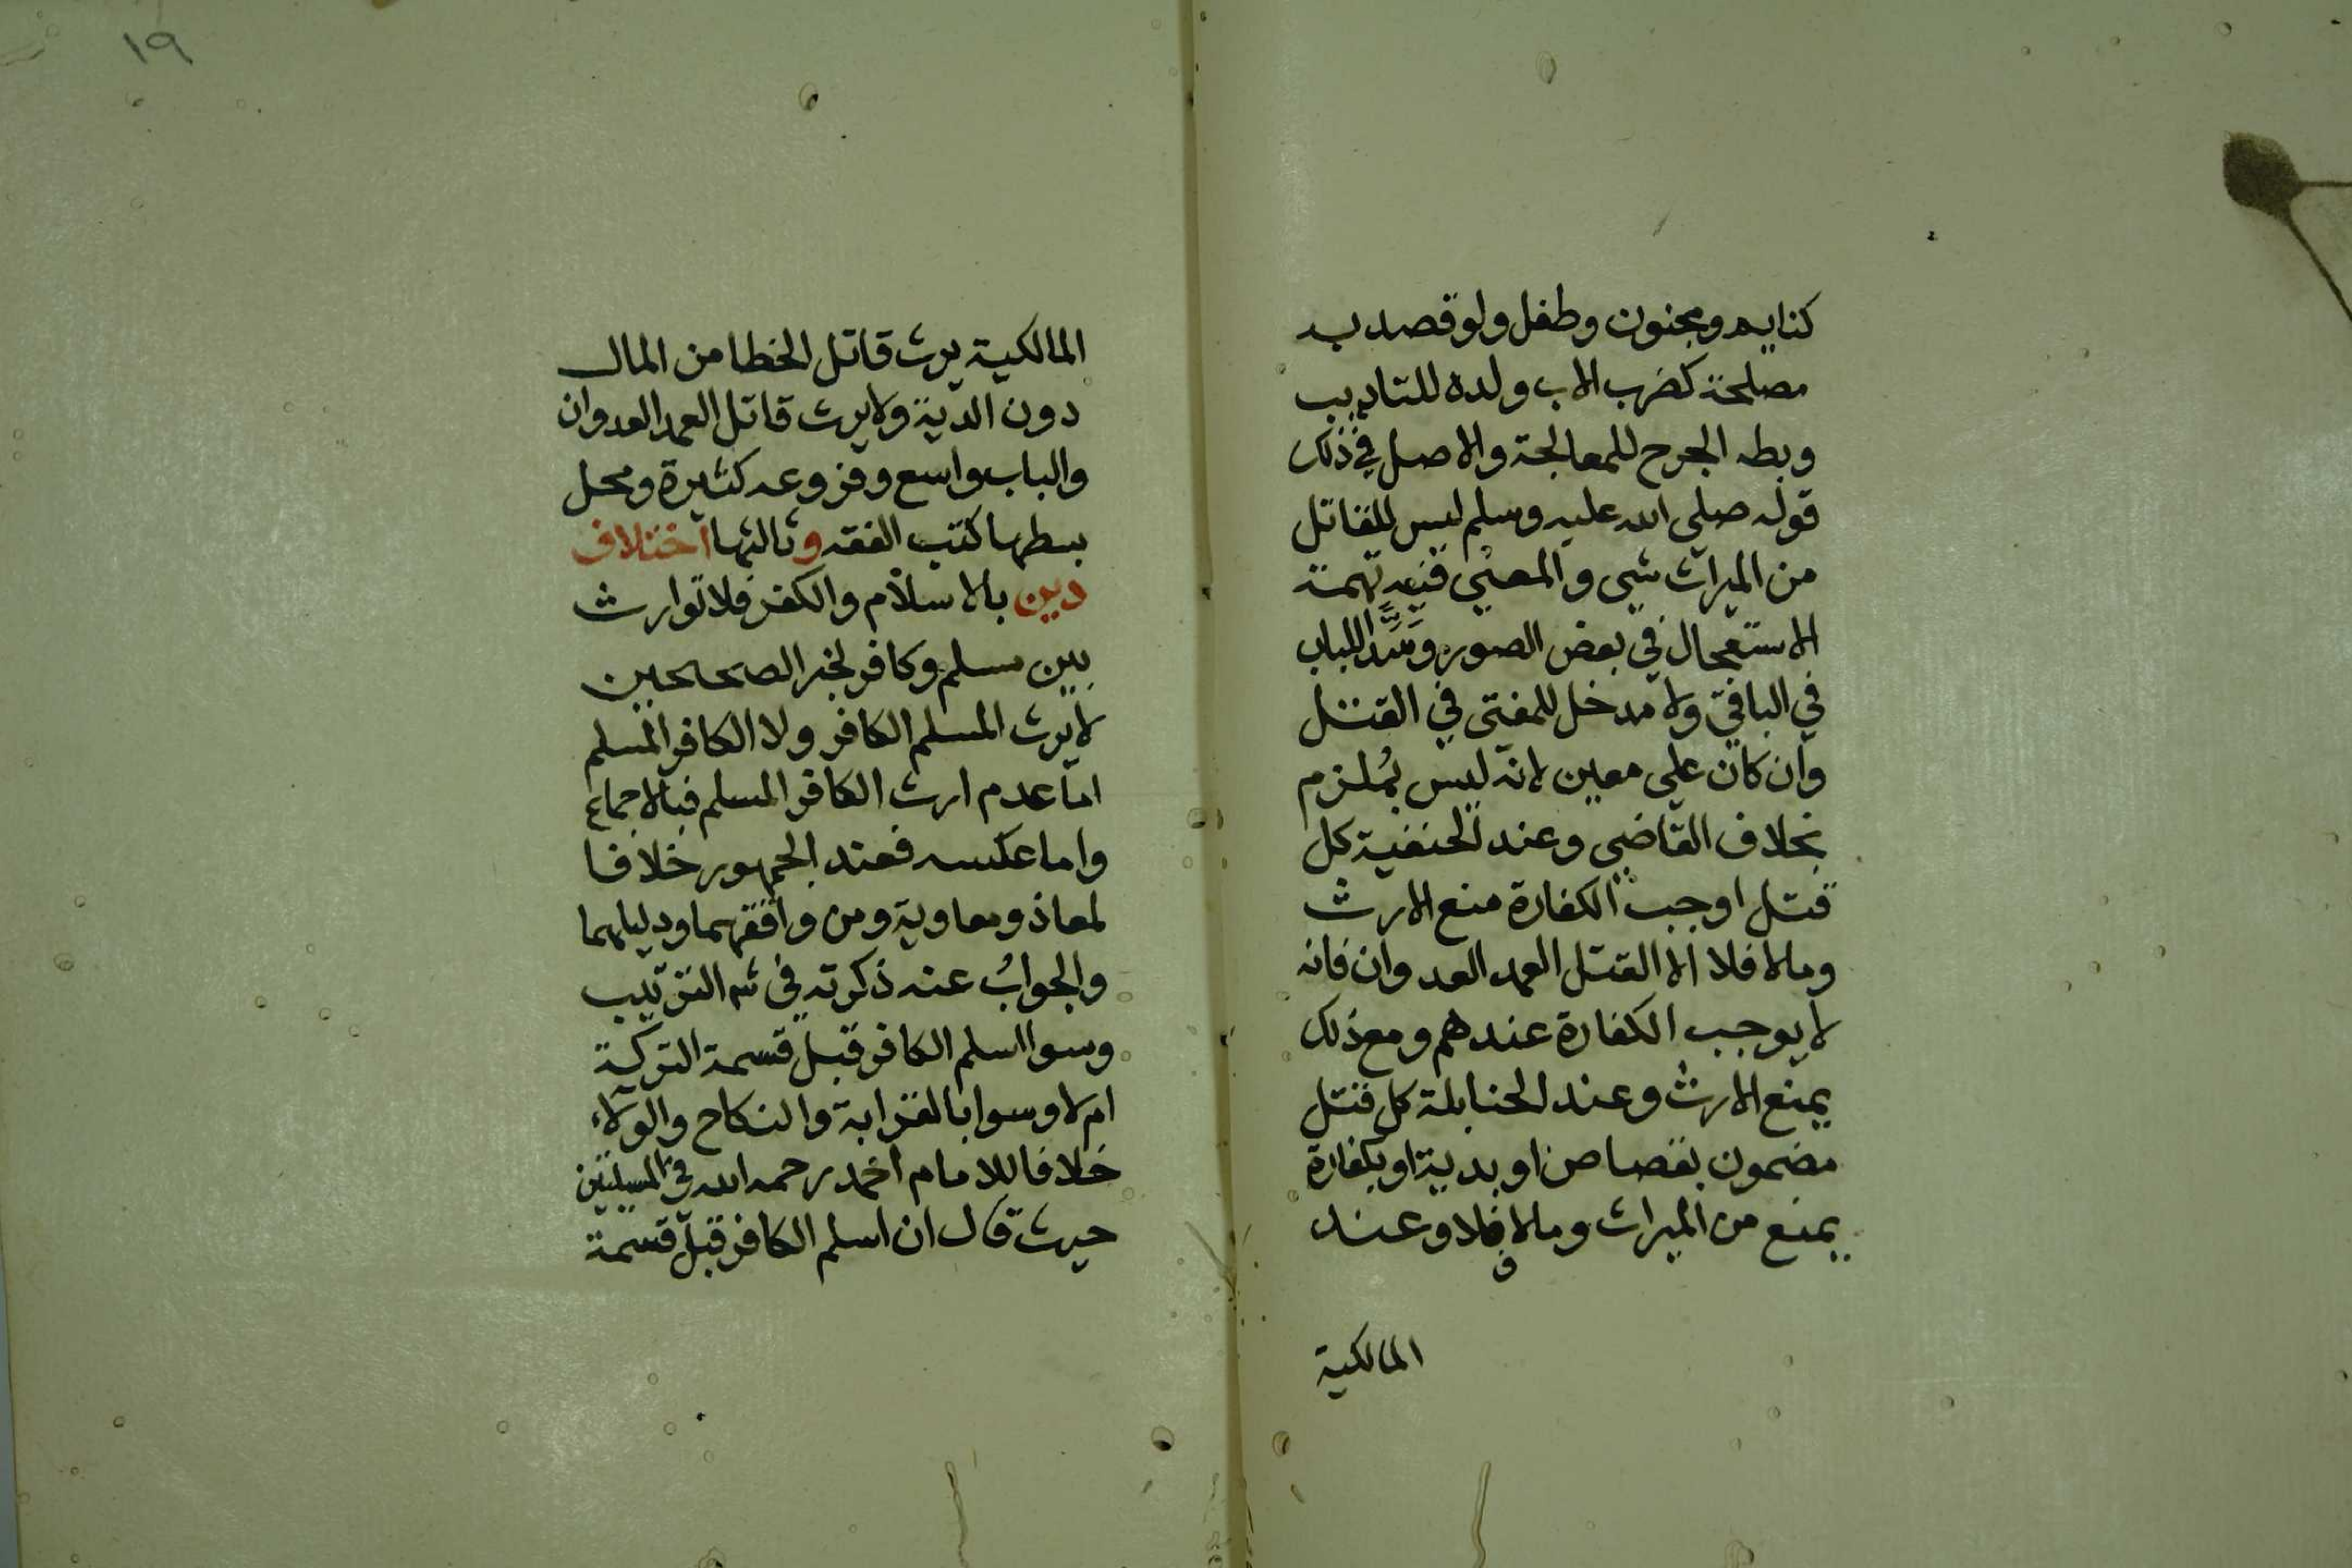 كنايم ومجنون وطفل ولو قصد به
مصلحة كضرب الاب ولده للتاديب
وبطه الجرح للمعالجة والاصل في ذلك
قوله صلى الله عليه وسلم ليس للقاتل
من الميراث شي والمعنى فيه تهمة
الاستعجال في بعض الصور وسدا للباب
في الباقي ولا مدخل للمفتى في القتل
وان كان على معين لانه ليس بملزم
بخلاف القاضي وعند الحنفية كل
قتل اوجب الكفارة منع الارث
ومالا فلا الا القتل العمد العدوان فانه
لا يوجب الكفارة عندهم ومع ذلك
يمنع الارث وعند الحنابلة كل قتل
مضمون بقصاص او بدية او بكفارة
يمنع من الميراث ومالا فلا وعند
المالكية
١٩
المالكية يرث قاتل الخطا من المال
دون الدية ولا يرث قاتل العمد العدوان
والباب واسع وفروعه كثيرة ومحل
بسطها كتب الفقه وثالثها اختلاف
دين بالاسلام والكفر فلا توارث
بين مسلم وكافر لخبر الصحيحين
لا يرث المسلم الكافر ولا الكافر المسلم
اما عدم ارث الكافر المسلم فبالاجماع
واما عكسه فعند الجمهور خلافا
لمعاذ ومعاوية ومن وافقهما ودليلهما
والجواب عنه ذكرته في شه الترتيب
وسوا اسلم الكافر قبل قسمة التركة
ام لا وسوا بالقرابة والنكاح والولاء
خلافا للامام احمد رحمه الله في المسيلتين
حيث قال ان اسلم الكافر قبل قسمة